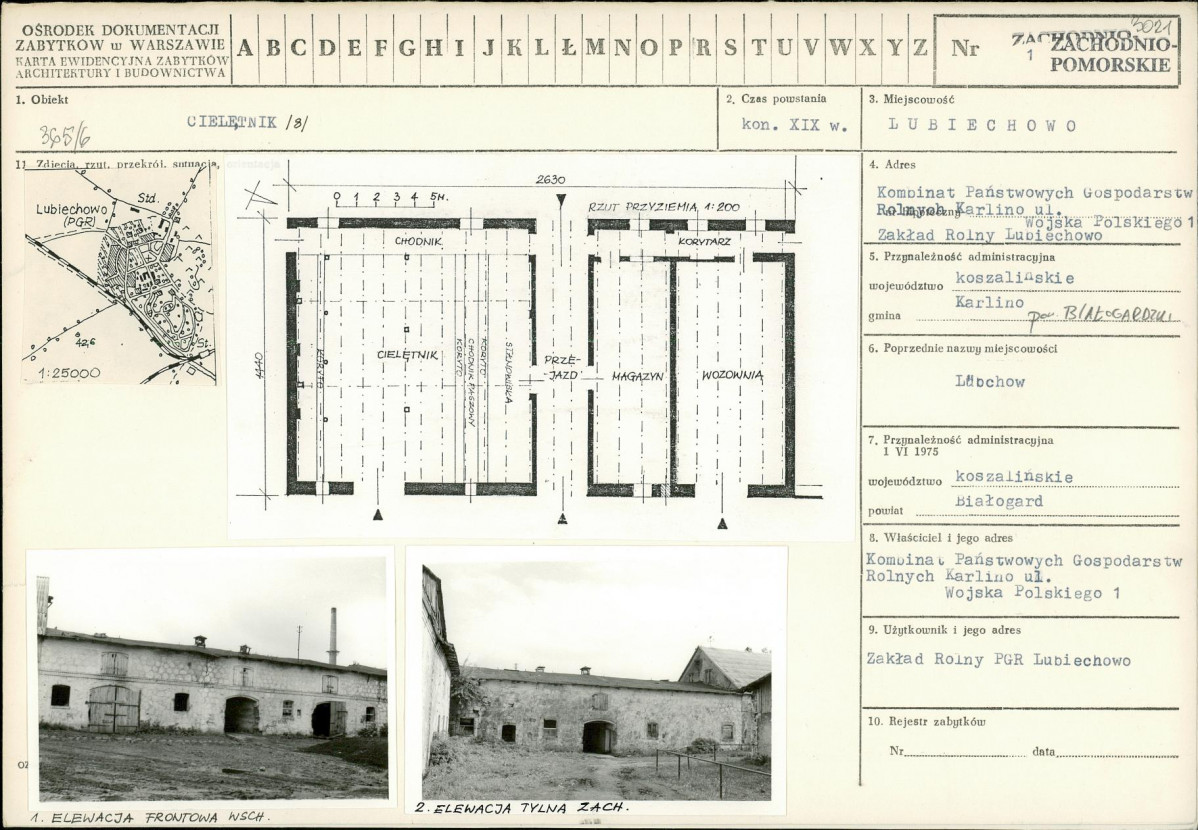 OŚRODEK DOKUMENTACJI
ZABYTKÓW w WARSZAWIE
KARTA EWIDENCYJNA ZABYTKÓW
ARCHITEKTURY I BUDOWNICTWA
A B C D E F G H I J K L Ł M N O P R S T U V W X Y Z
Nr
3021
1
ZACHODNIO-
ZACHODNIO-
POMORSKIE
1. Obiekt
CIELĘTNIK /8/
365/6
2. Czas powstania
kon. XIX w.
3. Miejscowość
LUBIECHOWO
11. Zdjęcia, rzut, przekrój, sytuacja, orientacja
Lubiechowo
(PGR)
Std.
St.
42,6
1:25000
2630
0 1 2 3 4 5M.
RZUT PRZYZIEMIA 1:200
CHODNIK
KORYTARZ
1440
CIELĘTNIK
KORYTO
KORYTO
CHODNIK PASZOWY
KORYTO
STANOWISKA
PRZE-
-JAZD
MAGAZYN
WOZOWNIA
4. Adres
Kombinat Państwowych Gospodarstw
Rolnych Karlino ul.
Wojska Polskiego 1
Zakład Rolny Lubiechowo
5. Przynależność administracyjna
województwo koszalińskie
gmina Karlino
pow. BIAŁOGARDZKI
6. Poprzednie nazwy miejscowości
Lübchow
7. Przynależność administracyjna
1 VI 1975
województwo koszalińskie
powiat Białogard
8. Właściciel i jego adres
Kombinat Państwowych Gospodarstw
Rolnych Karlino ul.
Wojska Polskiego 1
9. Użytkownik i jego adres
Zakład Rolny PGR Lubiechowo
10. Rejestr zabytków
Nr data
1. ELEWACJA FRONTOWA WSCH.
2. ELEWACJA TYLNA ZACH.